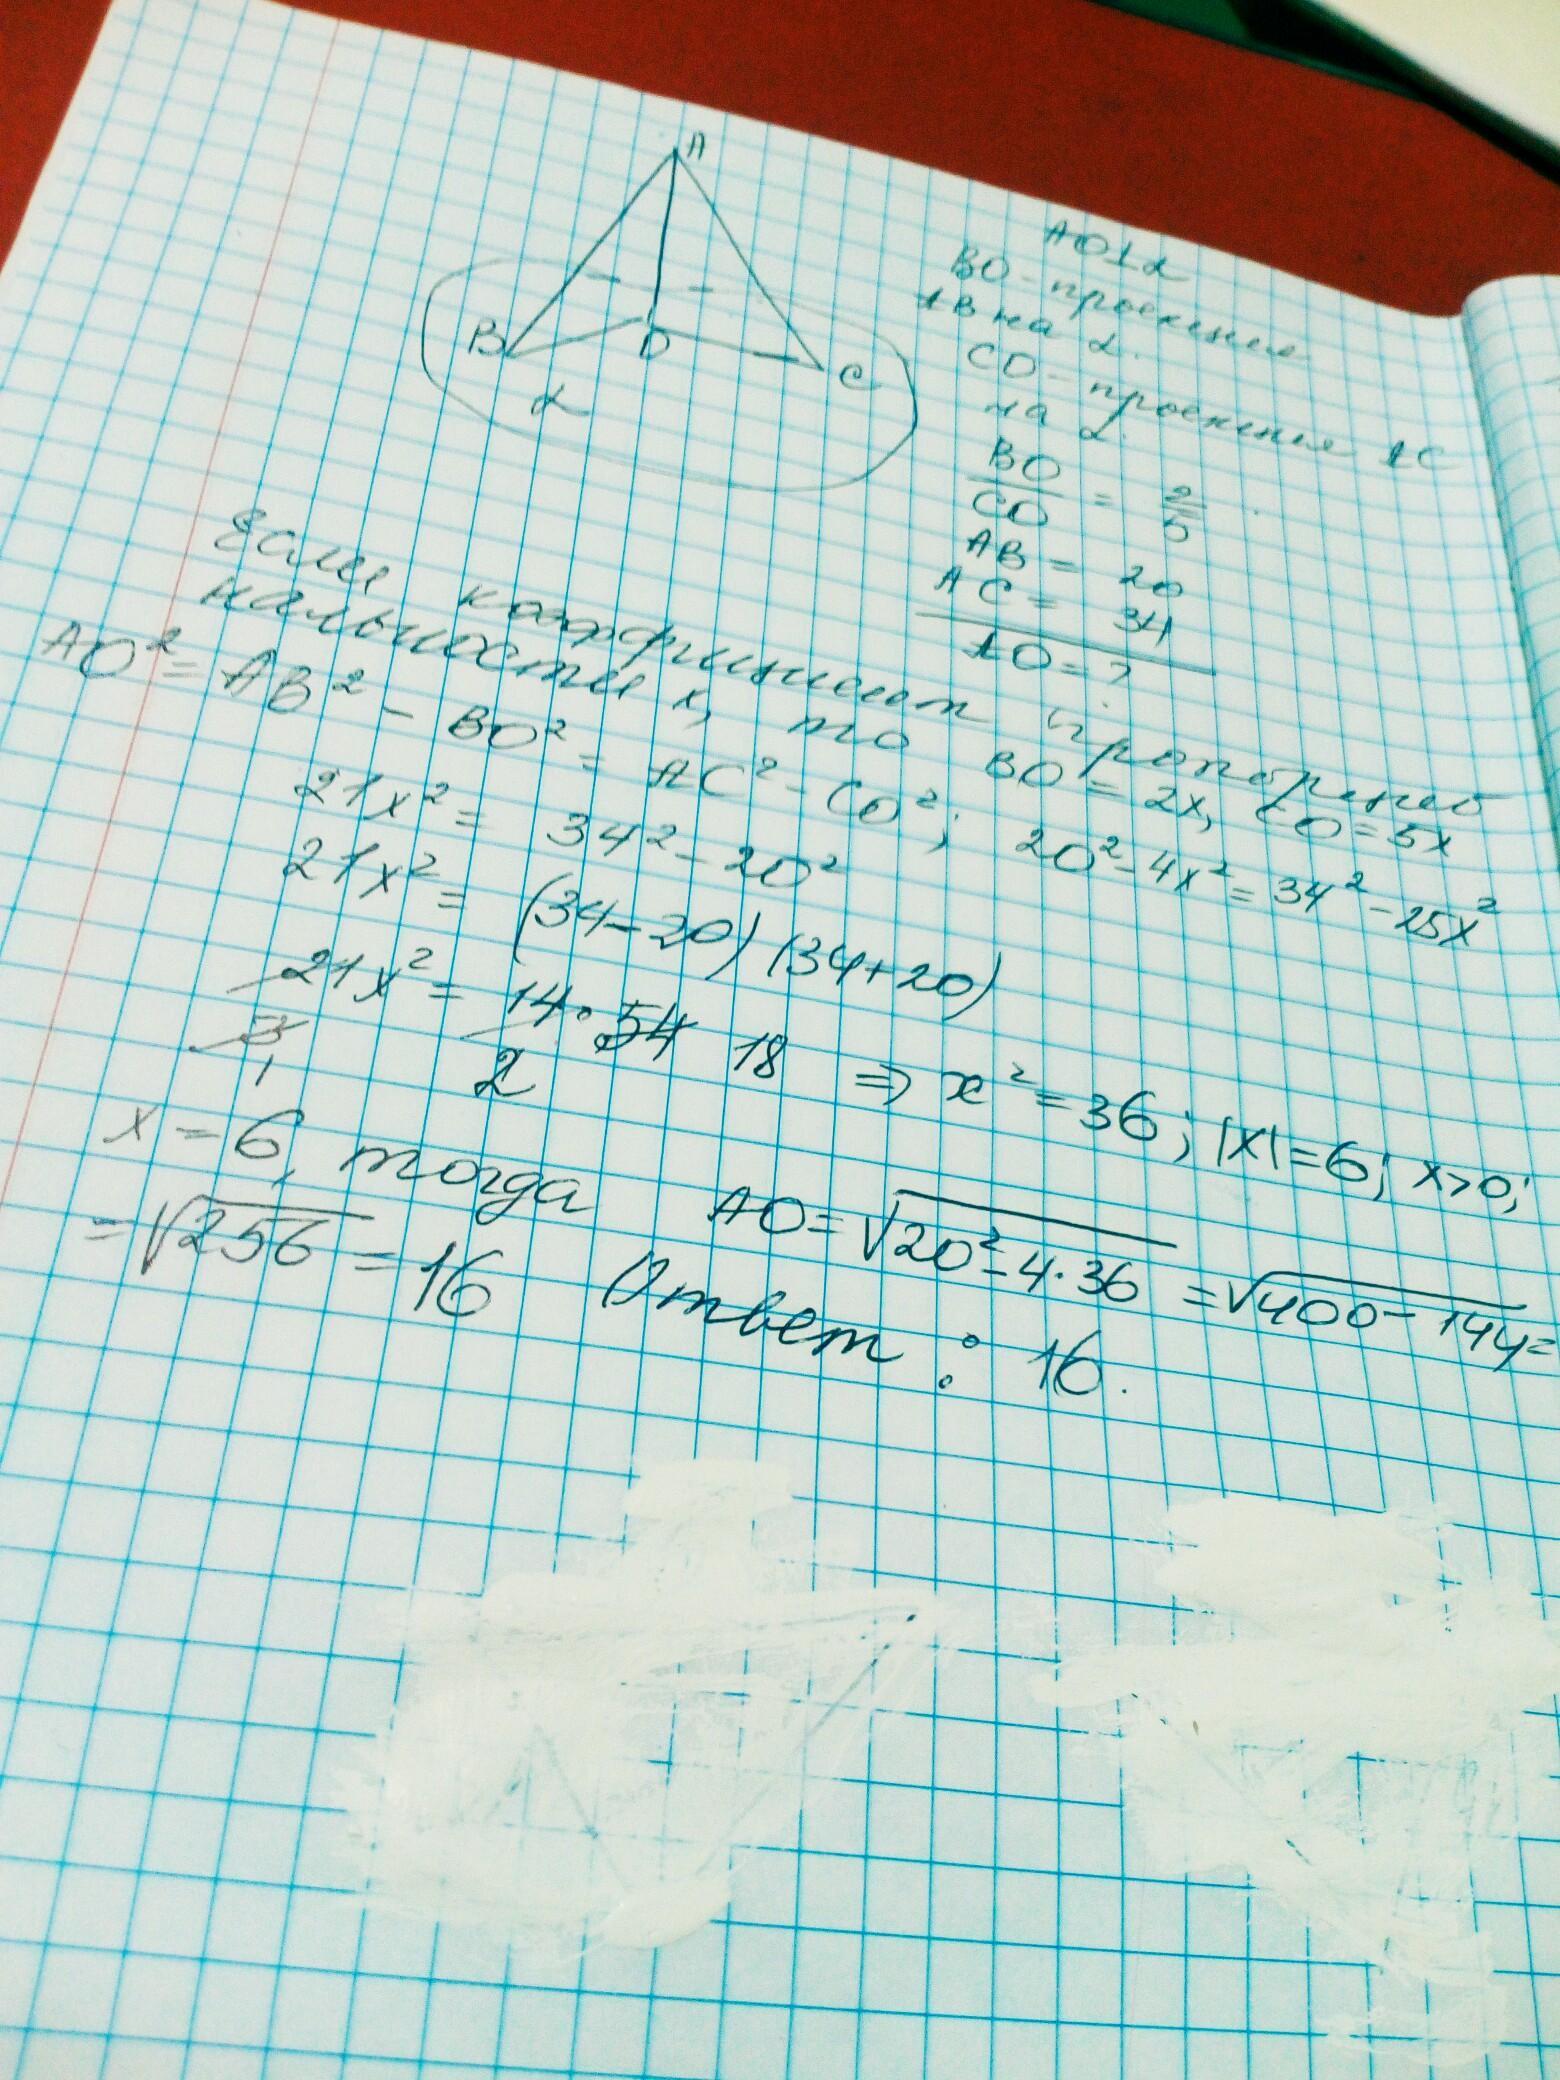 A
B
O
C
α
AO⊥α
BO - проекция
AB на α.
CO - проекция AC
на α.
BO/CO = 2/5
AB = 20
AC = 34
AO = ?
Если коэффициент пропорцио
нальности x, то BO = 2x, CO = 5x
AO² = AB² - BO² = AC² - CO²; 20² - 4x² = 34² - 25x²
21x² = 34² - 20²
21x² = (34-20)(34+20)
21x² = 14 · 54 18 ⇒ x² = 36; |x| = 6; x>0;
3 2
1
x = 6, тогда AO = √20² - 4·36 = √400 - 144 =
= √256 = 16 Ответ : 16.